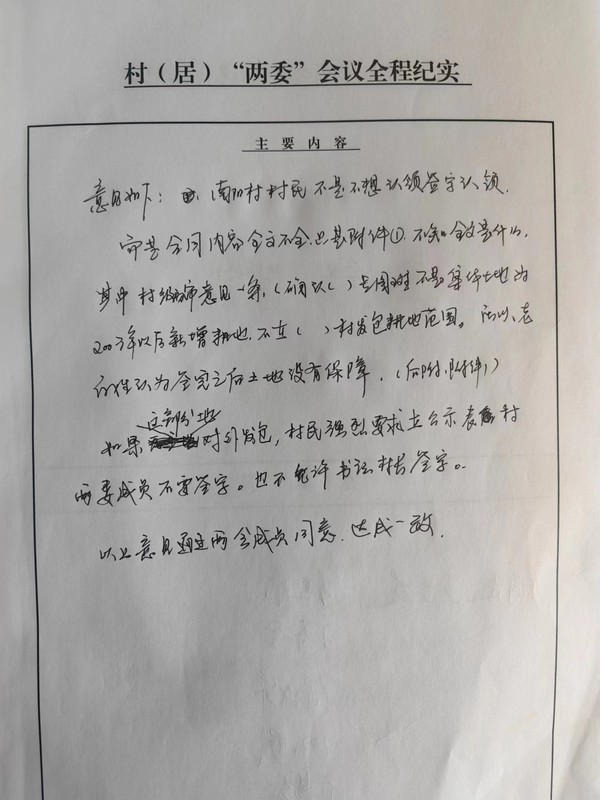 村（居）“两委”会议全程纪实
主 要 内 容
意见如下：南阳村村民不是不想认领签字认领.
合同内容全文不全.只是附件①.不知全文是什么,
其中村级初审意见一条,（确认（ ）去圈班不是集体土地为
2003年以后新增耕地.不在（ ）村发包耕地范围。所以,老
百姓认为签完之后土地没有保障.（后附.附件1）
这部分地
如果对外发包, 村民强烈要求立公示表 村
两委成员不要签字。也不允许书记村长签字。
以上意见通过两会成员同意.达成一致.